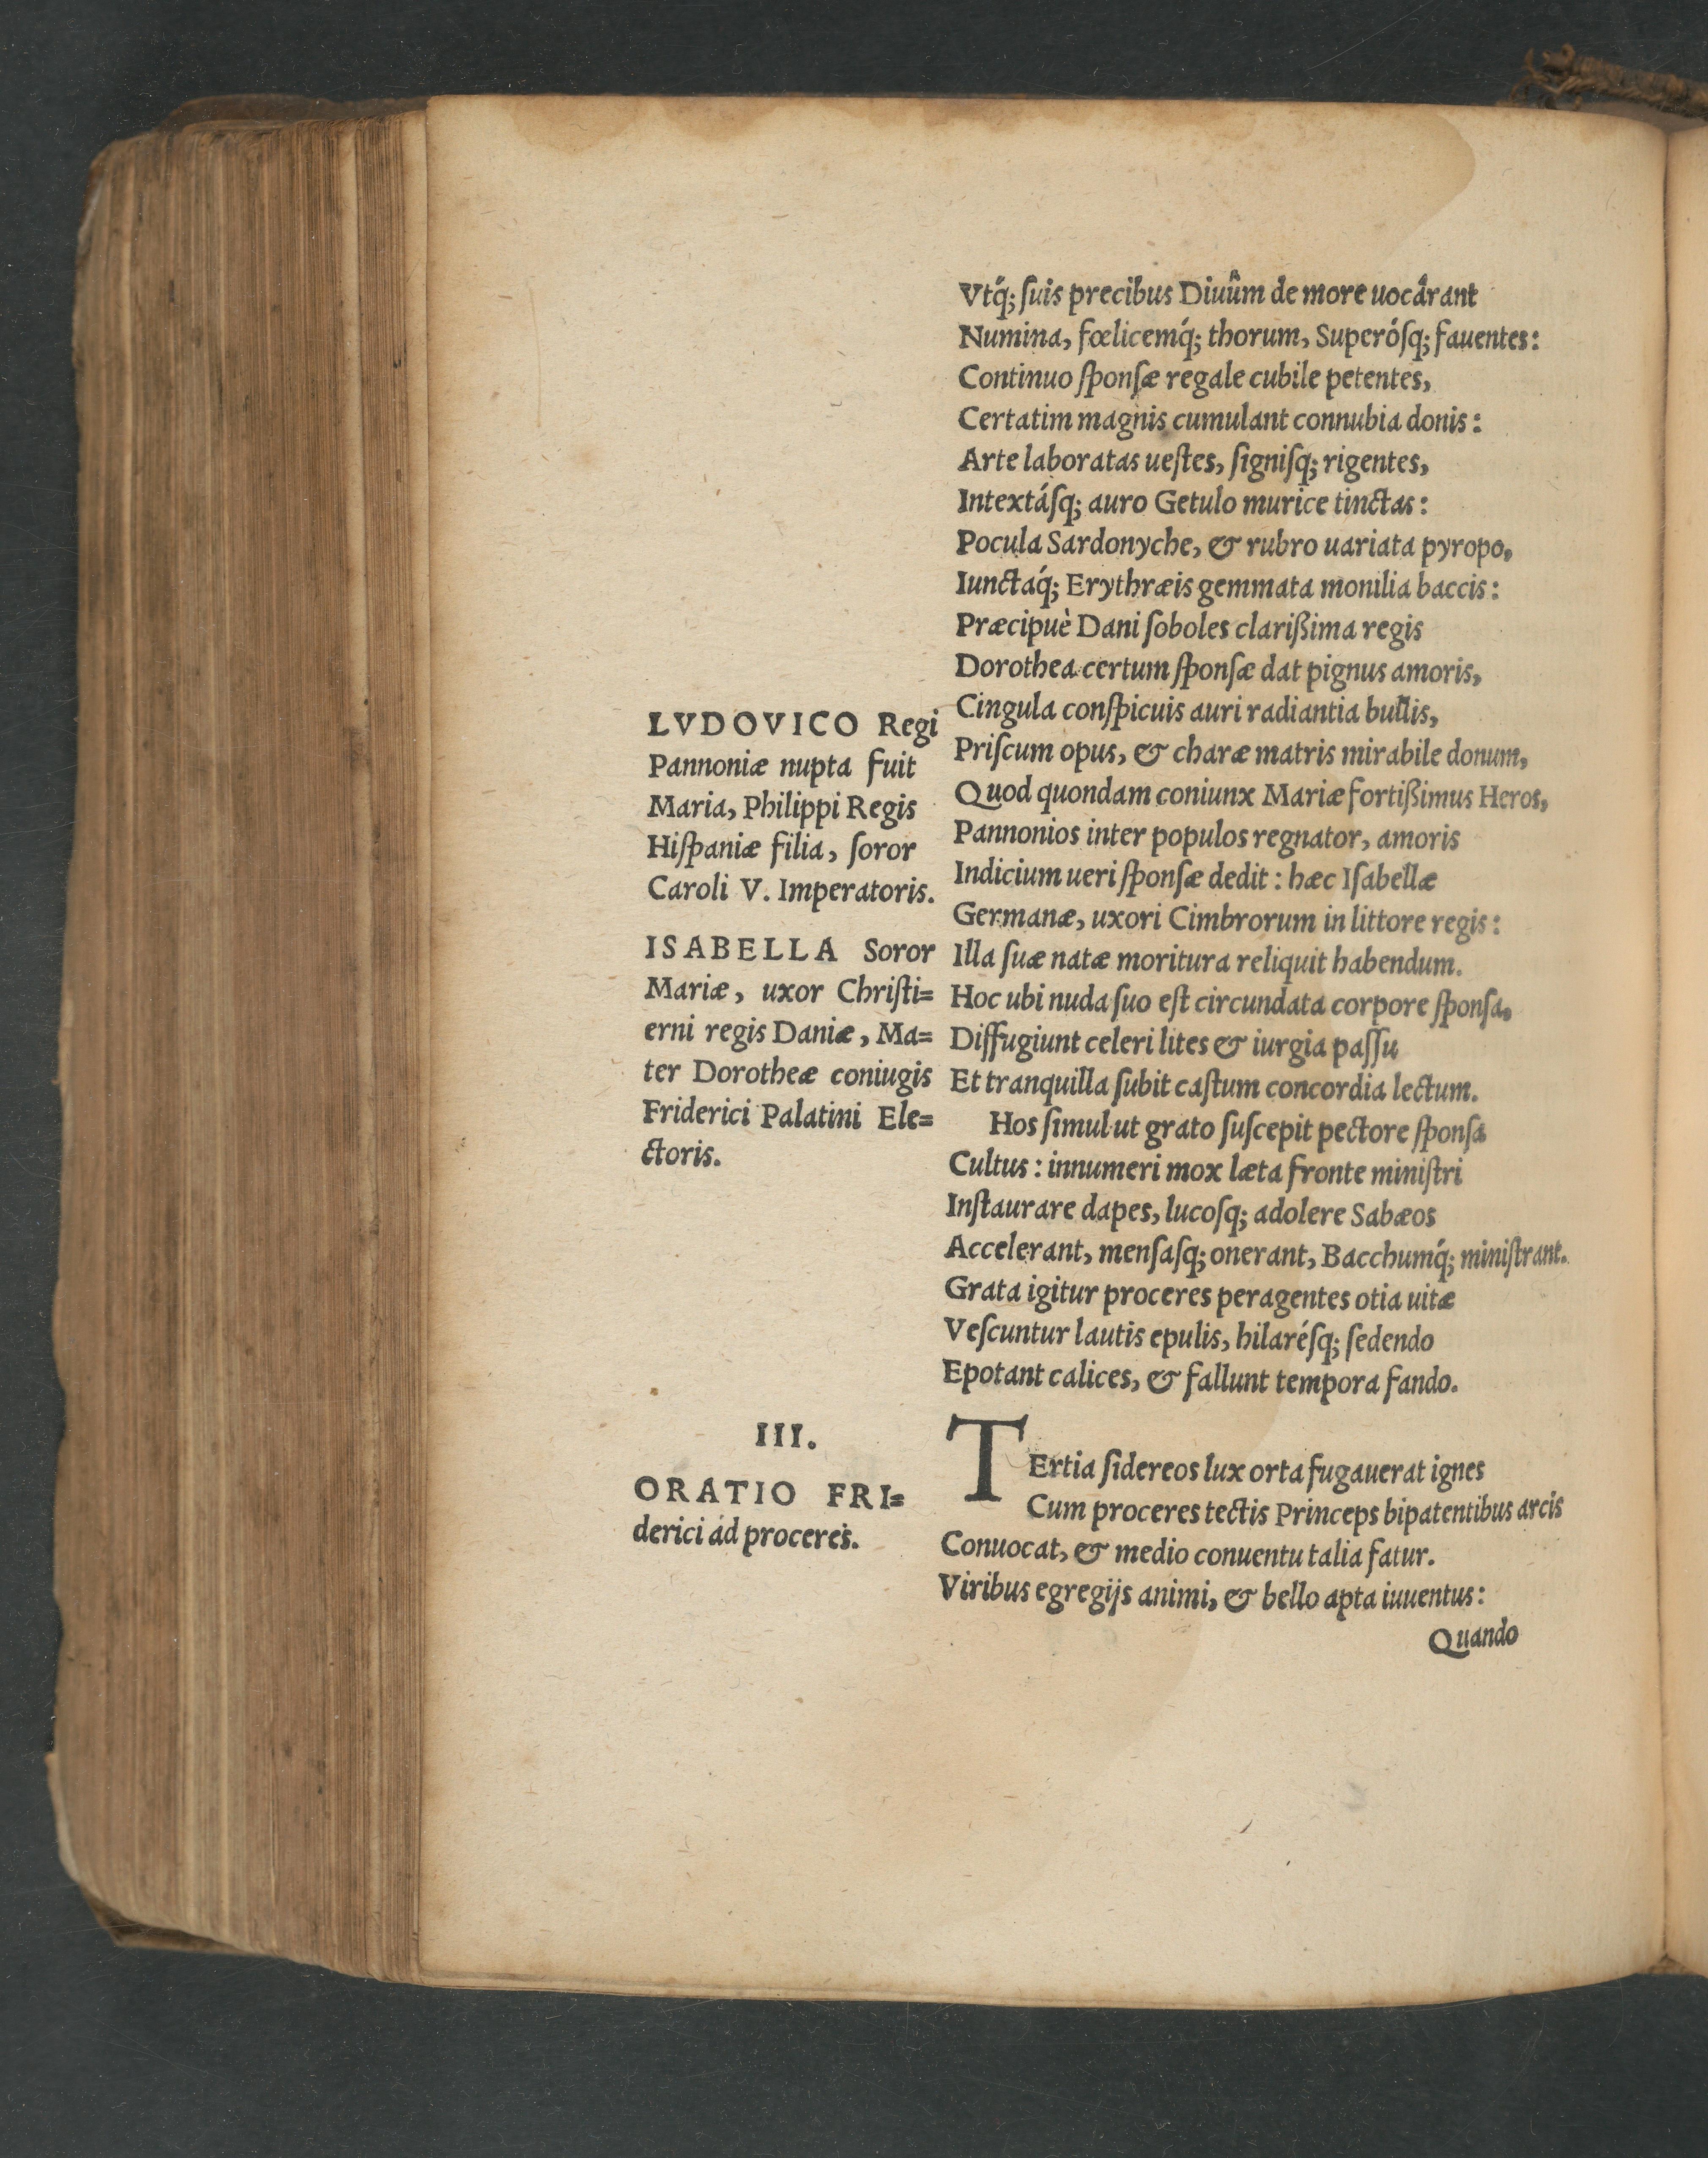 Vtq́; ſuis precibus Diuûm de more uocârant
Numina, fœlicemq́; thorum, Superóſq; fauentes:
Continuo ſponſæ regale cubile petentes,
Certatim magnis cumulant connubia donis:
Arte laboratas ueſtes, ſigniſq; rigentes,
Intextáſq; auro Getulo murice tinctas:
Pocula Sardonyche, & rubro uariata pyropo,
Iunctaq́; Erythræis gemmata monilia baccis:
Præcipuè Dani ſoboles clarißima regis
Dorothea certum ſponſæ dat pignus amoris,
Cingula conſpicuis auri radiantia bullis,
Priſcum opus, & charæ matris mirabile donum,
Quod quondam coniunx Mariæ fortißimus Heros,
Pannonios inter populos regnator, amoris
Indicium ueri ſponſæ dedit: hæc Iſabellæ
Germanæ, uxori Cimbrorum in littore regis:
Illa ſuæ natæ moritura reliquit habendum.
Hoc ubi nuda ſuo eſt circundata corpore ſponſa,
Diffugiunt celeri lites & iurgia paſſu
Et tranquilla ſubit caſtum concordia lectum.
Hos ſimul ut grato ſuſcepit pectore ſponſa
Cultus: innumeri mox læta fronte miniſtri
Inſtaurare dapes, lucoſq; adolere Sabæos
Accelerant, menſaſq; onerant, Bacchumq́; miniſtrant.
Grata igitur proceres peragentes otia uitæ
Veſcuntur lautis epulis, hilaréſq; ſedendo
Epotant calices, & fallunt tempora fando.
LVDOVICO Regi
Pannoniæ nupta fuit
Maria, Philippi Regis
Hiſpaniæ filia, ſoror
Caroli V. Imperatoris.
ISABELLA Soror
Mariæ, uxor Chriſti=
erni regis Daniæ, Ma=
ter Dorotheæ coniugis
Friderici Palatini Ele=
ctoris.
III.
ORATIO FRI=
derici ad proceres.
TErtia ſidereos lux orta fugauerat ignes
Cum proceres tectis Princeps bipatentibus arcis
Conuocat, & medio conuentu talia fatur.
Viribus egregijs animi, & bello apta iuuentus:
Quando